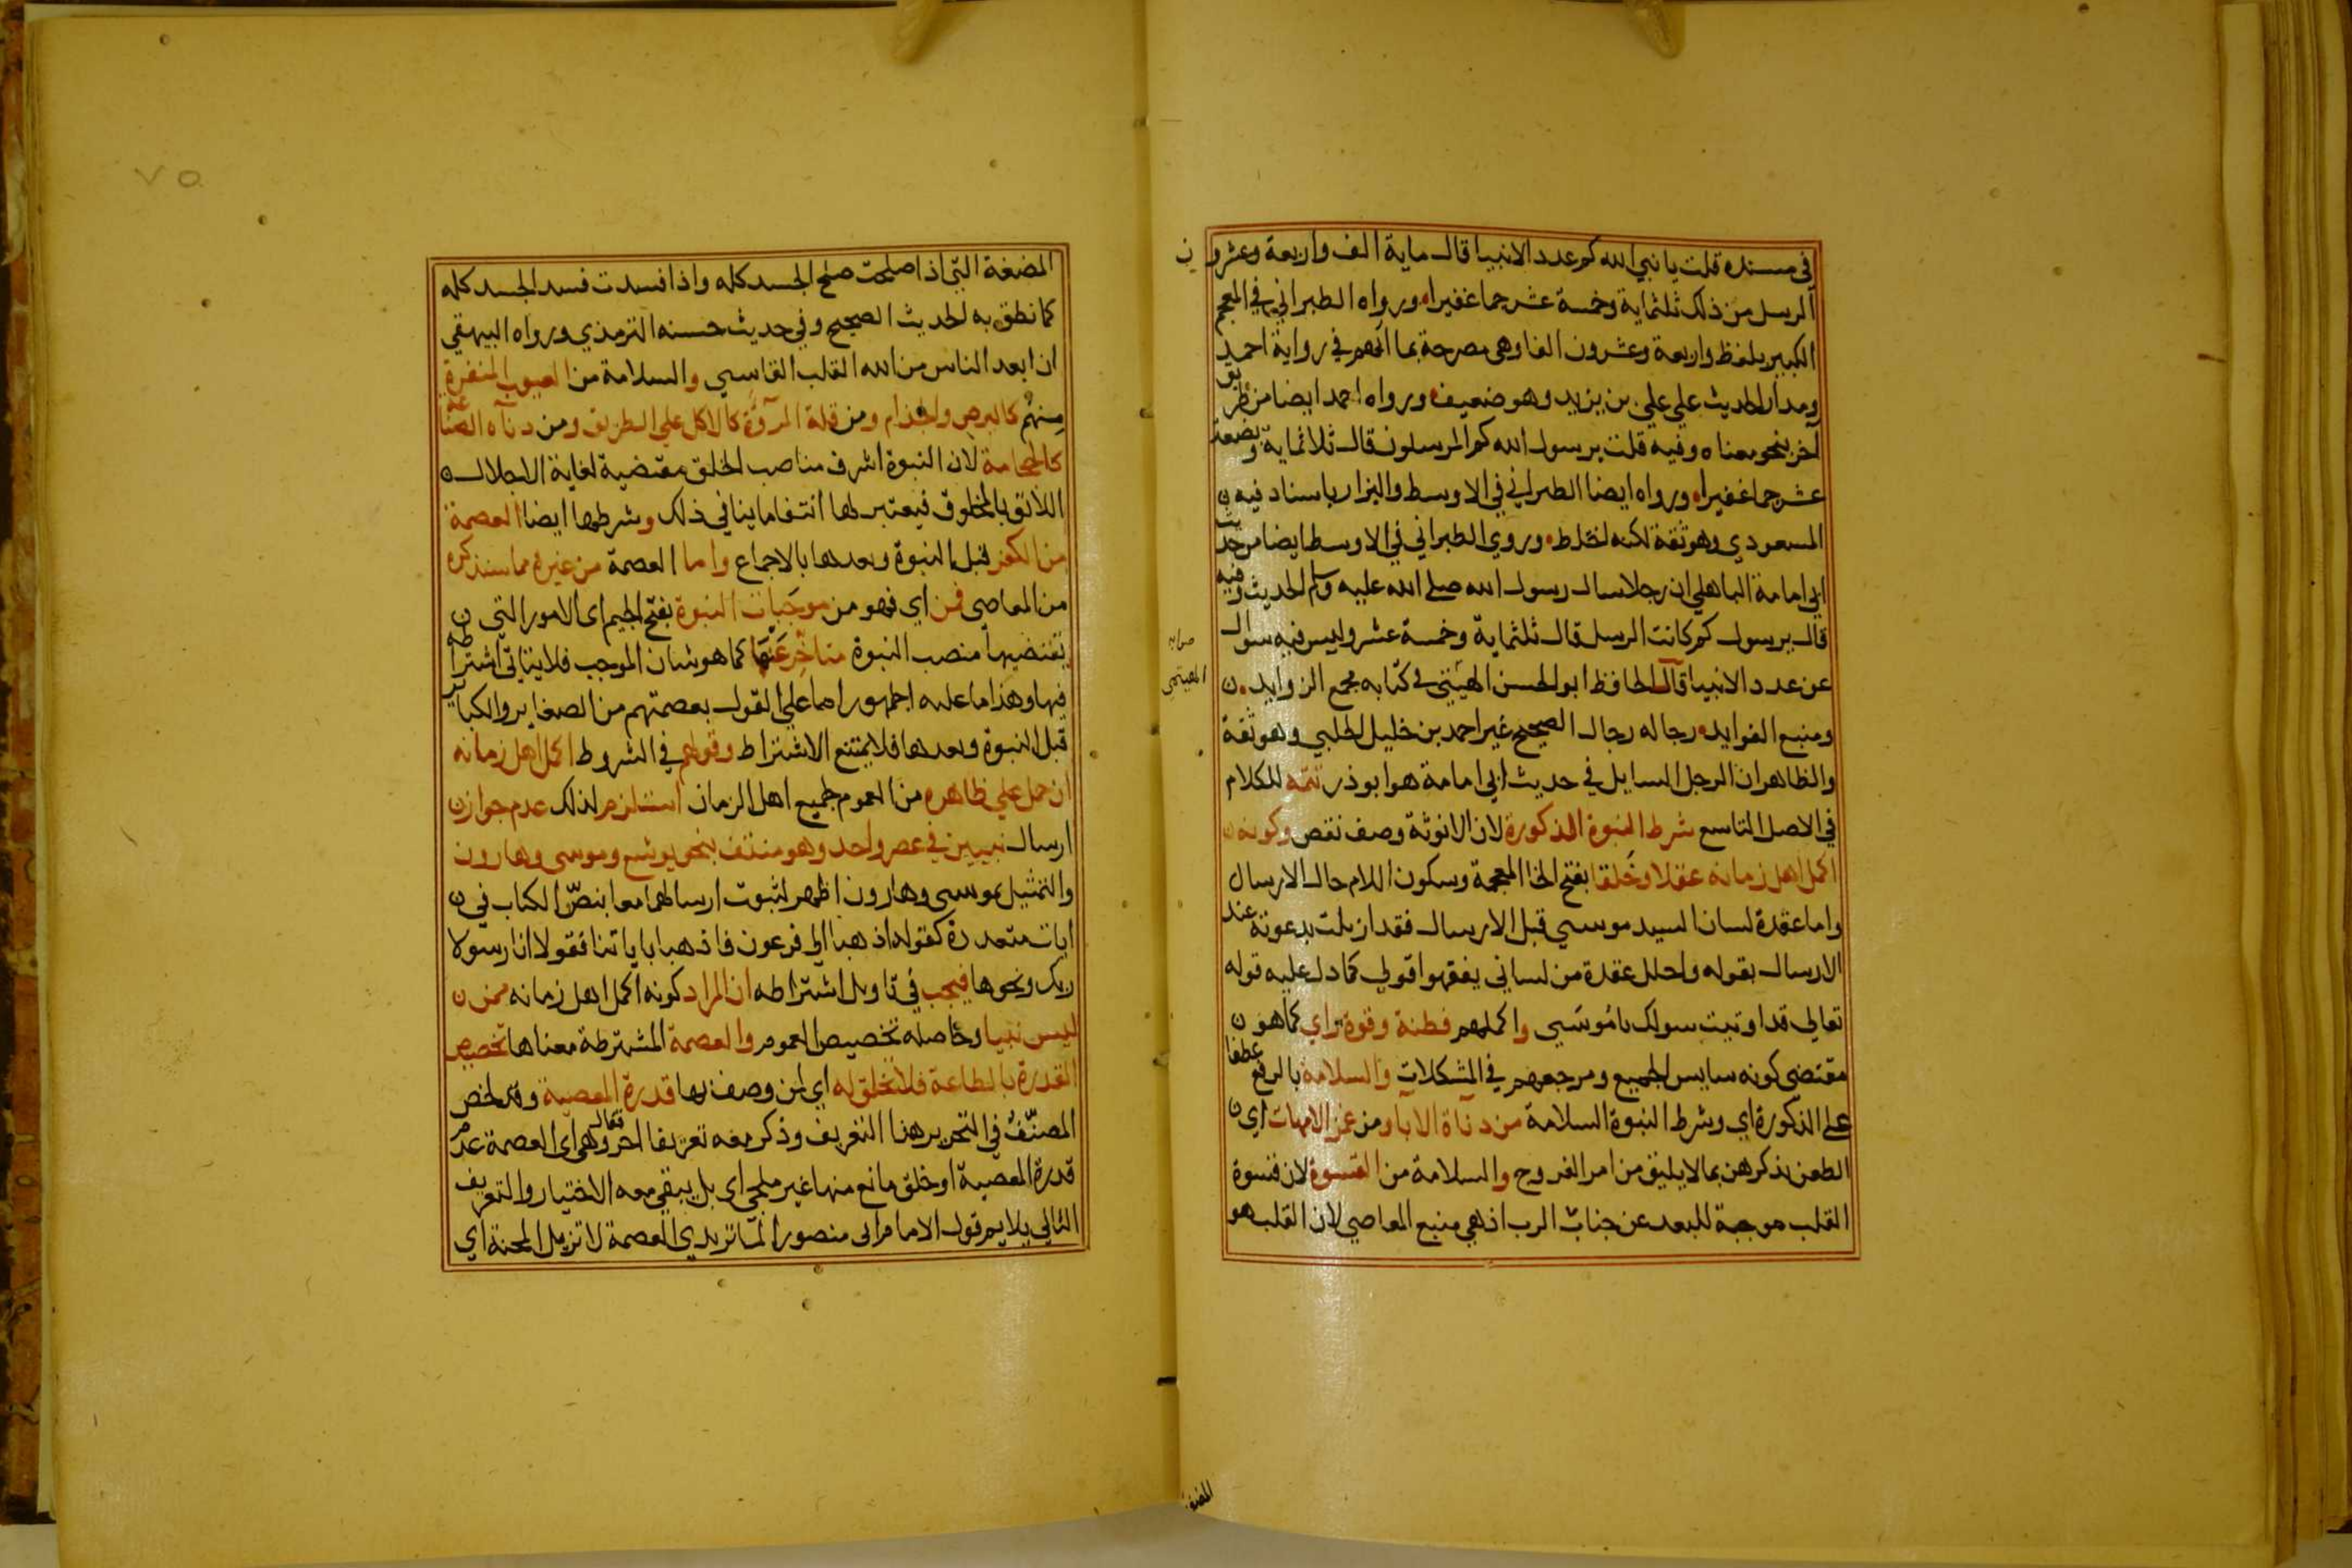 في مسنده قلت يا نبي الله كم عدد الانبيا قال ماية الف واربعة وعشرون
الرسل من ذلك ثلثماية وخمسة عشر جما غفيرا ورواه الطبراني في المعجم
الكبير بلفظ واربعة وعشرون الفا وهي مصرحة بما انهم في رواية احمد
ومدار الحديث علي علي بن يزيد وهو ضعيف ورواه احمد ايضا من طريق
آخر بنحو معناه وفيه قلت يرسول الله كم المرسلون قال ثلاثماية وبضعة
عشر جما غفيرا ورواه ايضا الطبراني في الاوسط والبزار باسناد فيه
المسعودي وهو ثقة لكنه اختلط وروي الطبراني في الاوسط ايضا من حديث
ابي امامة الباهلي ان رجلا سال رسول الله صلى الله عليه وسلم الحديث وفيه
قال يرسول كم كانت الرسل قال ثلثماية وخمسة عشر وليس فيه سوال
عن عدد الانبيا قال الحافظ ابو الحسن الهيثني في كتابه مجمع الزوايد
صوابه
الهيتمي
ومنبع الفوايد رجاله رجال الصحيح غير احمد بن خليل الحلبي وهو ثقة
والظاهر ان الرجل السايل في حديث ابي امامة هو ابو ذر تتمه للكلام
في الاصل التاسع شرط النبوة الذكورة لان الانوثة وصف نقص وكونه
اكمل اهل زمانه عقلا وخَلقا بفتح الخا المعجمة وسكون اللام حال الارسال
واما عقدة لسان السيد موسي قبل الارسال فقد ازيلت بدعوته عند
الارسال بقوله واحلل عقدة من لساني يفقهوا قولي كما دل عليه قوله
تعالي قد اوتيت سولك يا موسي واكملهم فطنة وقوة راي كما هو
مقتضى كونه سايس الجميع ومرجعهم في المشكلات والسلامة بالرفع عطفا
على الذكورة اي وشرط النبوة السلامة من دناة الابا ومن غمز الامهات اي
الطعن بذكرهن بما لا يليق من امر الفروج والسلامة من القسوة لان قسوة
القلب موجبة للبعد عن جناب الرب اذ هي منبع المعاصي لان القلب هو
المضغة
٧٥
المضغة التي اذا صلحت صلح الجسد كله واذا فسدت فسد الجسد كله
كما نطق به الحديث الصحيح وفي حديث حسنه الترمذي ورواه البيهقي
ان ابعد الناس من الله القلب القاسي والسلامة من العيوب المنفرة
منهم كالبرص والجذام ومن قلة المروّة كالاكل علي الطريق ومن دناة الصناعة
كالحجامة لان النبوة اشرف مناصب الخلق مقتضية لغاية الاجلال
اللائق بالمخلوق فيعتبر لها انتفا ما ينافي ذلك وشرطها ايضا العصمة
من الكفر قبل النبوة وبعدها بالاجماع واما العصمة من غيره مما سنذكره
من المعاصي فمن اي فهو من موجَبات النبوة بفتح الجيم اي الامور التي
يقتضيها منصب النبوة متاخر عنها كما هو شان الموجب فلا ينافي اشتراطه
فيها وهذا ما عليه الجمهور اما علي القول بعصمتهم من الصغاير والكباير
قبل النبوة وبعدها فلا يمتنع الاشتراط وقولهم في الشروط اكمل اهل زمانه
ان حمل علي ظاهره من العموم لجميع اهل الزمان استلزم لذلك عدم جواز
ارسال نبيين في عصر واحد وهو منتف بنحو يوشع وموسى وهارون
والتمثيل بموسى وهارون اظهر لثبوت ارسالهما معا بنص الكتاب في
ايات متعددة كقوله اذهبا الي فرعون فاذهبا باياتنا فقولا انا رسولا
ربك ونحوها فيجب في تاويل اشتراطه ان المراد كونه اكمل اهل زمانه ممن
ليس نبيا وحاصله تخصيص العموم والعصمة المشترطة معناها تخصيص
القدرة بالطاعة فلا تخلق له اي لمن وصف بها قدرة المعصية وقد لخص
المصنّف في التحرير هذا التعريف وذكر معه تعريفا اخر فقال وهي اي العصمة عدم
قدرة المعصية او خلق مانع منها غير ملجي اي بل يبقي معه الاختيار والتعريف
الثاني يلايم قول الامام ابي منصور الماتريدي العصمة لا تزيل المحنة اي